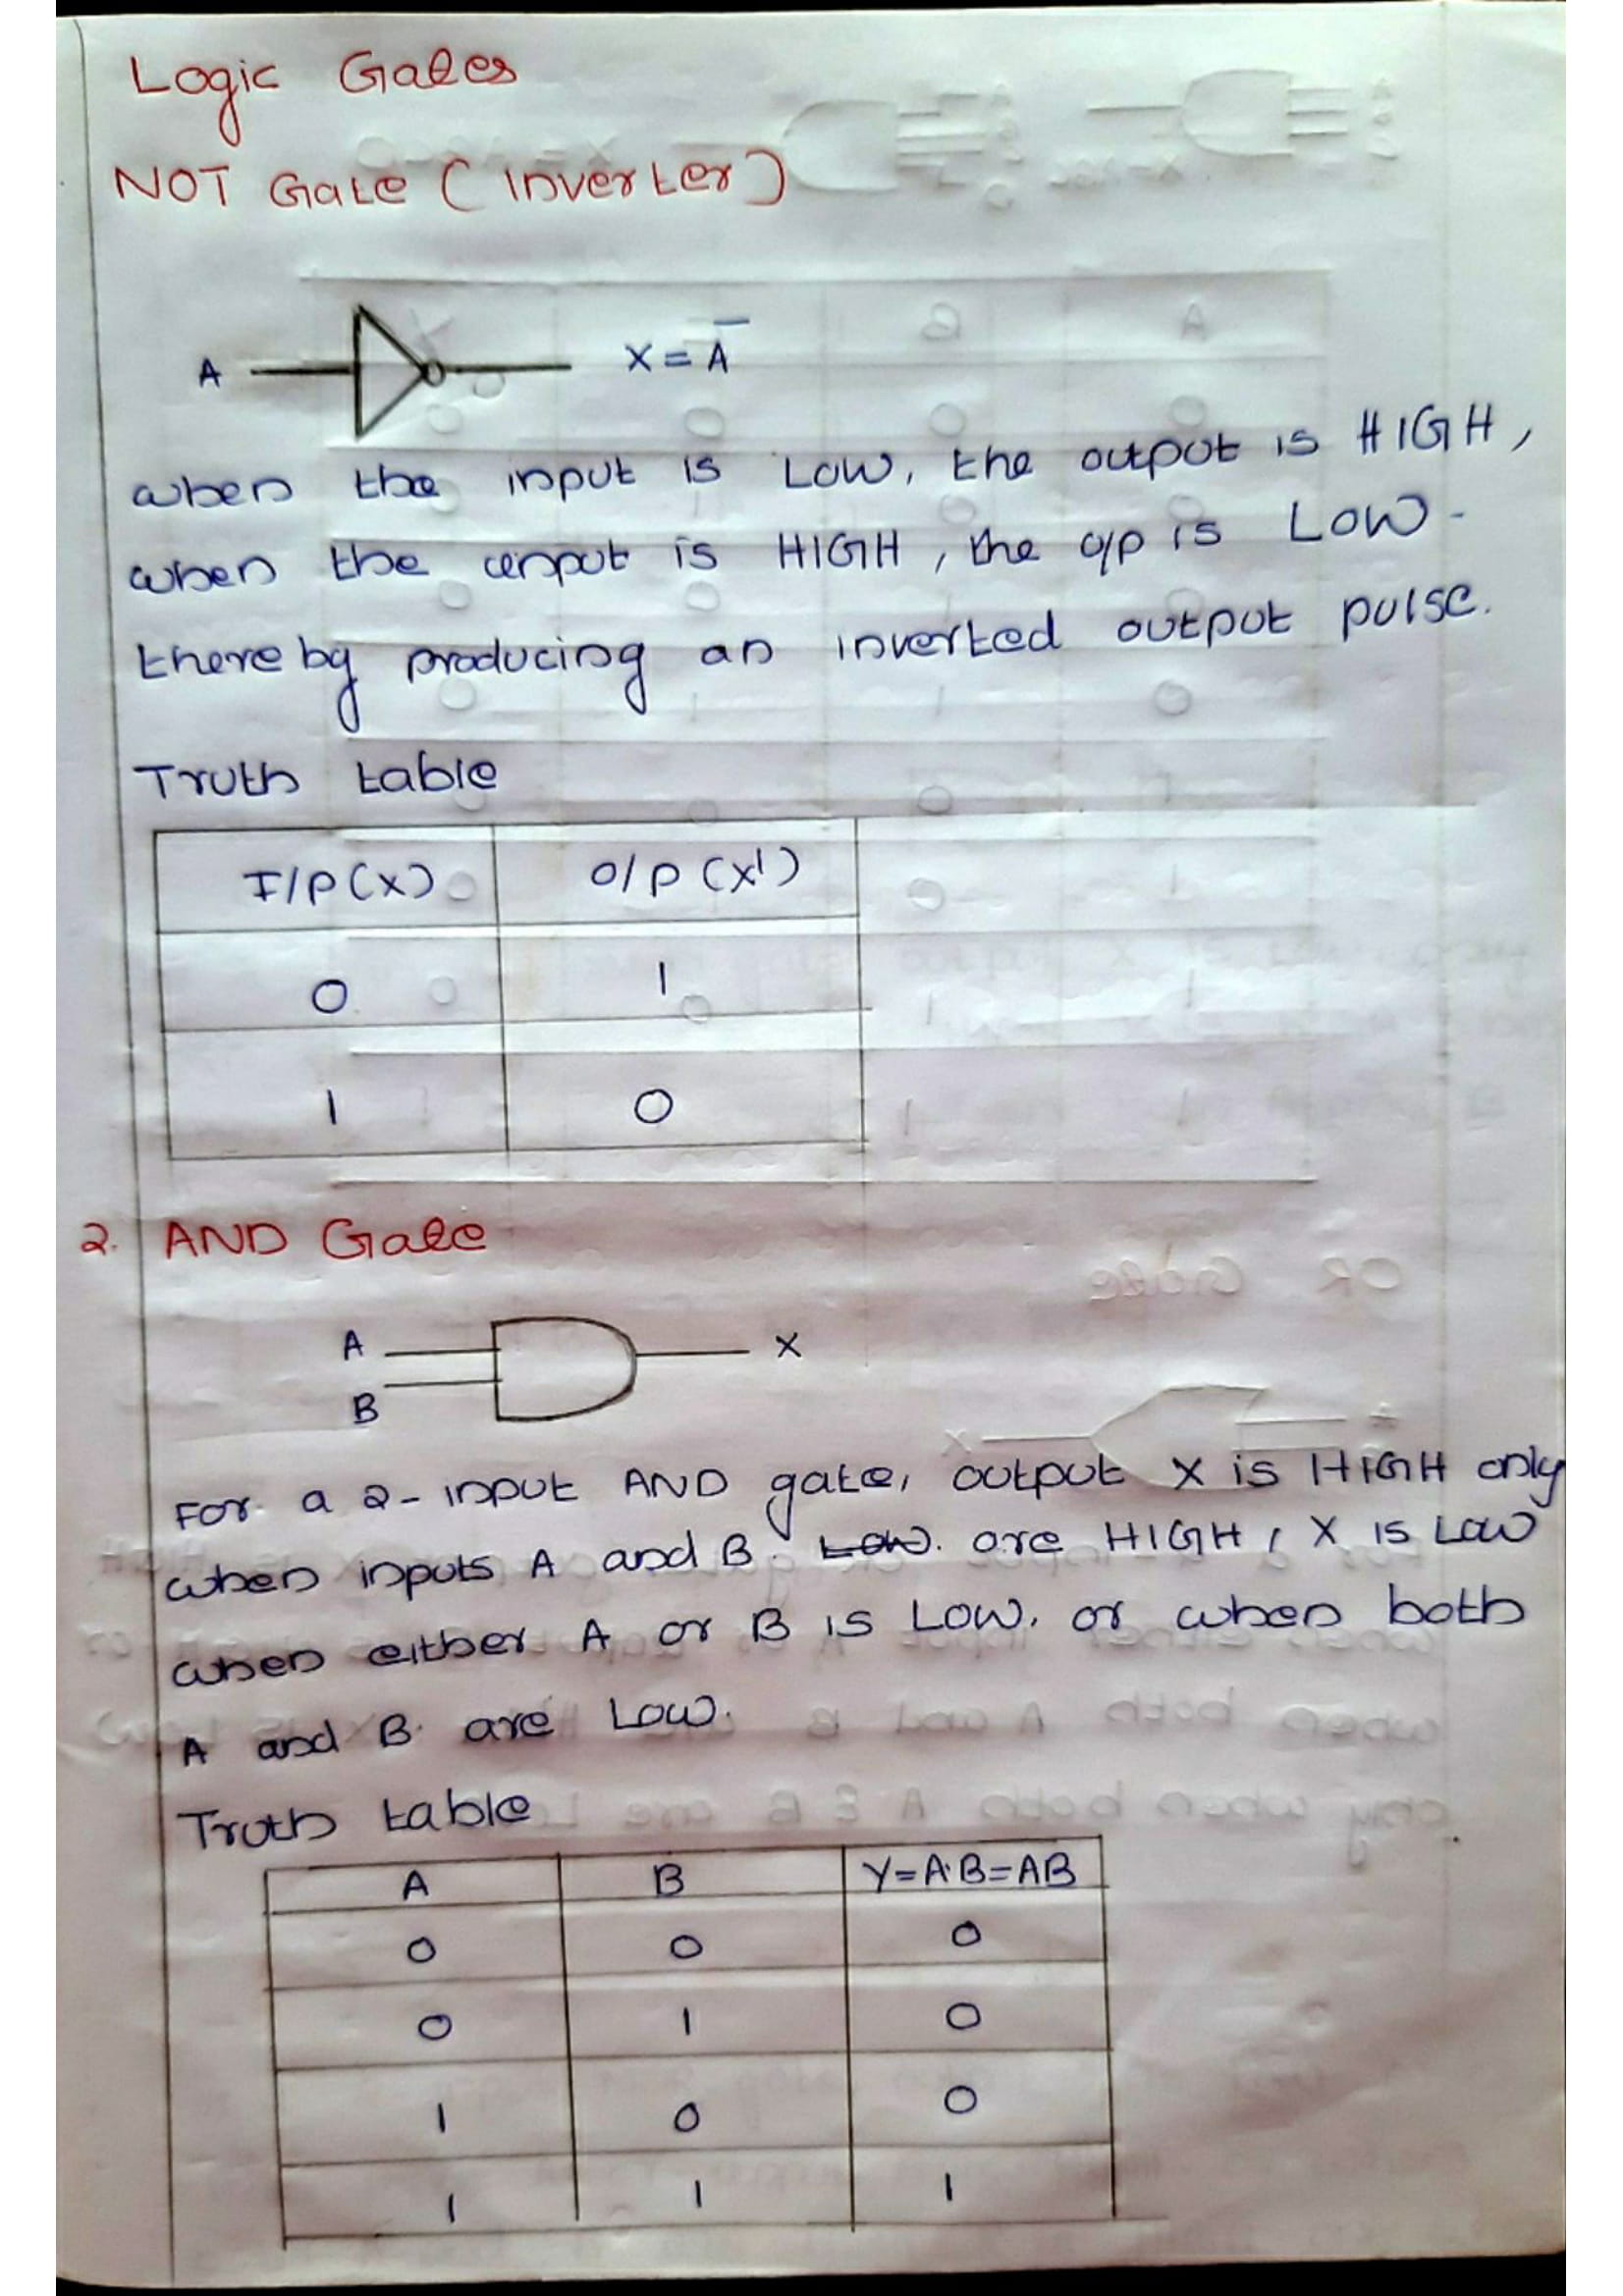 Logic Gates
NOT Gate (Inverter)
A X = A̅
when the input is Low, the output is HIGH,
when the input is HIGH, the o/p is Low.
thereby producing an inverted output pulse.
Truth table
I/P(X) O/P (X')
0 1
1 0
2. AND Gate
A X
B
For a 2-input AND gate, output X is HIGH only
when inputs A and B. Low. are HIGH, X is Low
when either A or B is Low. or when both
A and B are Low.
Truth table
A B Y=A·B=AB
0 0 0
0 1 0
1 0 0
1 1 1